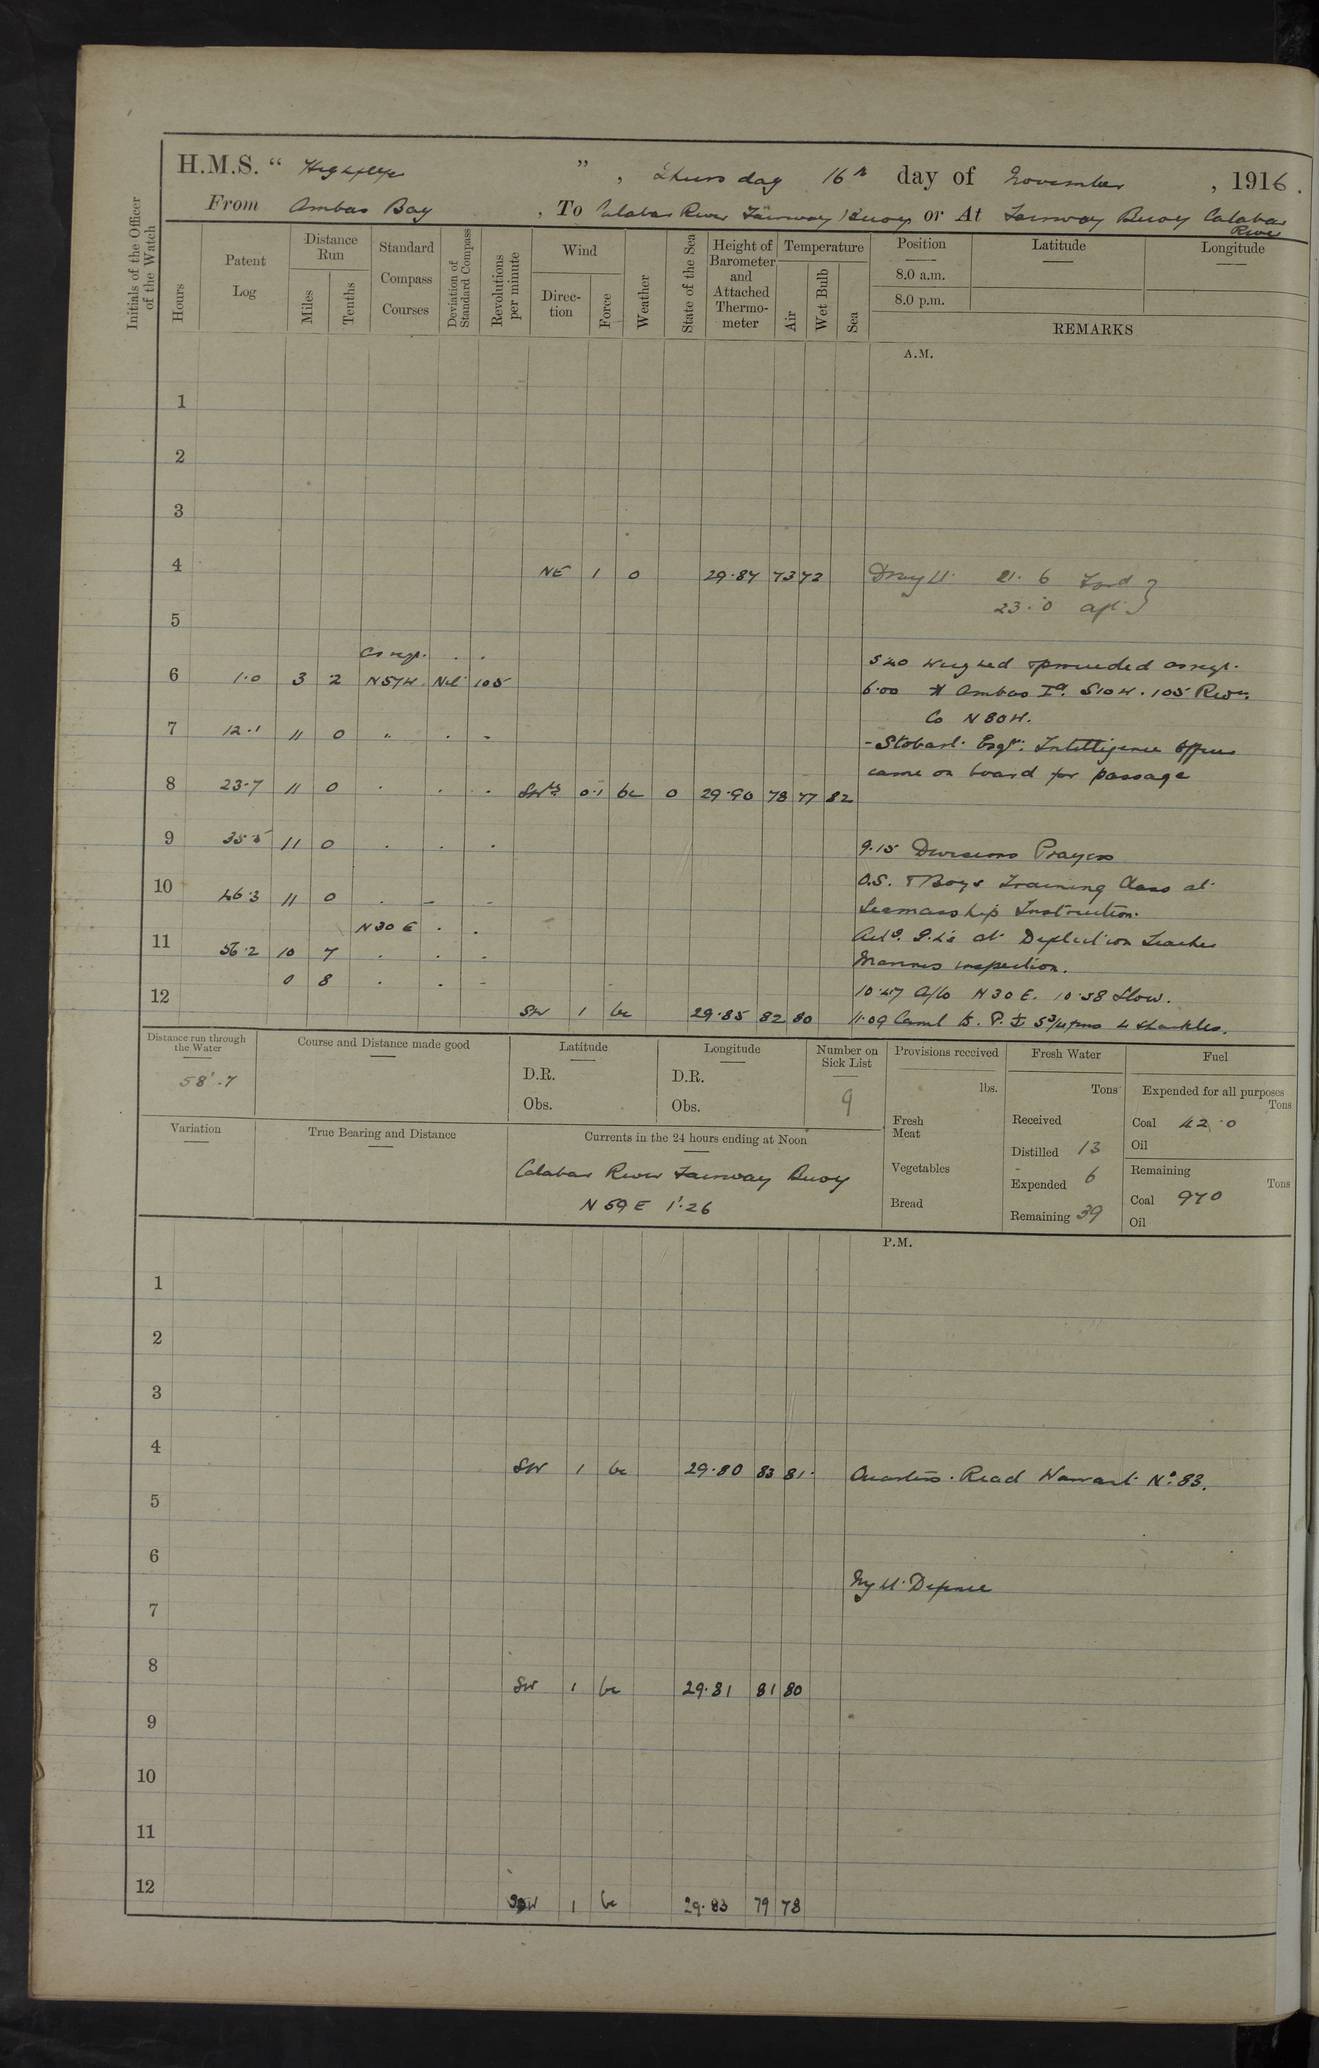 H.M.S. “ Highflyer ” , Thursday 16th day of November , 1916.
From Ambas Bay , To Calabar River Fairway Buoy or At Fairway Buoy Calabar River
Initials of the Officer of the Watch
Hours
Patent Log
Distance Run
Miles
Tenths
Standard Compass Courses
Deviation of Standard Compass
Revolutions per minute
Wind
Direction
Force
Weather
State of the Sea
Height of Barometer and Attached Thermometer
Temperature
Air
Wet Bulb
Sea
Position
8.0 a.m.
8.0 p.m.
Latitude
Longitude
REMARKS
A.M.
1
2
3
4 NE 1 o 29.87 73 72 21. 6 Ford
23. 0 Aft.
5
As reqt. . .
5 40 Weighed & proceeded as reqt.
6 1.0 3 2 N57W Nil 105
6.00 Ambas Id. S10W. 105 Revs.
Co N80W.
7 12.1 11 0 " . -
- Stobart Esqr. Intelligence Officer
came on board for passage
8 23.7 11 0 . . . 0.1 bc 0 29.90 78 77 82
9 35.5 11 0 . . .
9.15 Divisions Prayers
10 46.3 11 0 . - -
O.S. & Boys Training Class at
Seamanship Instruction.
N30E . .
at Deflection Teacher
11 56.2 10 7 . . .
Marines inspection.
0 8 . . -
10.47 A/Co N30E. 10.58 Slow.
12 SW 1 bc 29.85 82 80
11.09 Came to. P. 5¾ fms 4 shackles.
Distance run through the Water
58'.7
Course and Distance made good
Latitude
D.R.
Obs.
Longitude
D.R.
Obs.
Number on Sick List
9
Provisions received
lbs.
Fresh Meat
Vegetables
Bread
Fresh Water
Tons
Received
Distilled 13
Expended 6
Remaining 39
Fuel
Expended for all purposes
Tons
Coal 42.0
Oil
Remaining
Tons
Coal 970
Oil
Variation
True Bearing and Distance
Currents in the 24 hours ending at Noon
Calabar River Fairway Buoy
N 59 E 1'.26
P.M.
1
2
3
4 SW 1 bc 29.80 83 81. Quarters. Read Warrant No. 83.
5
6
Defence
7
8 SW 1 bc 29.81 81 80
9
10
11
12 SW 1 bc 29.83 79 78